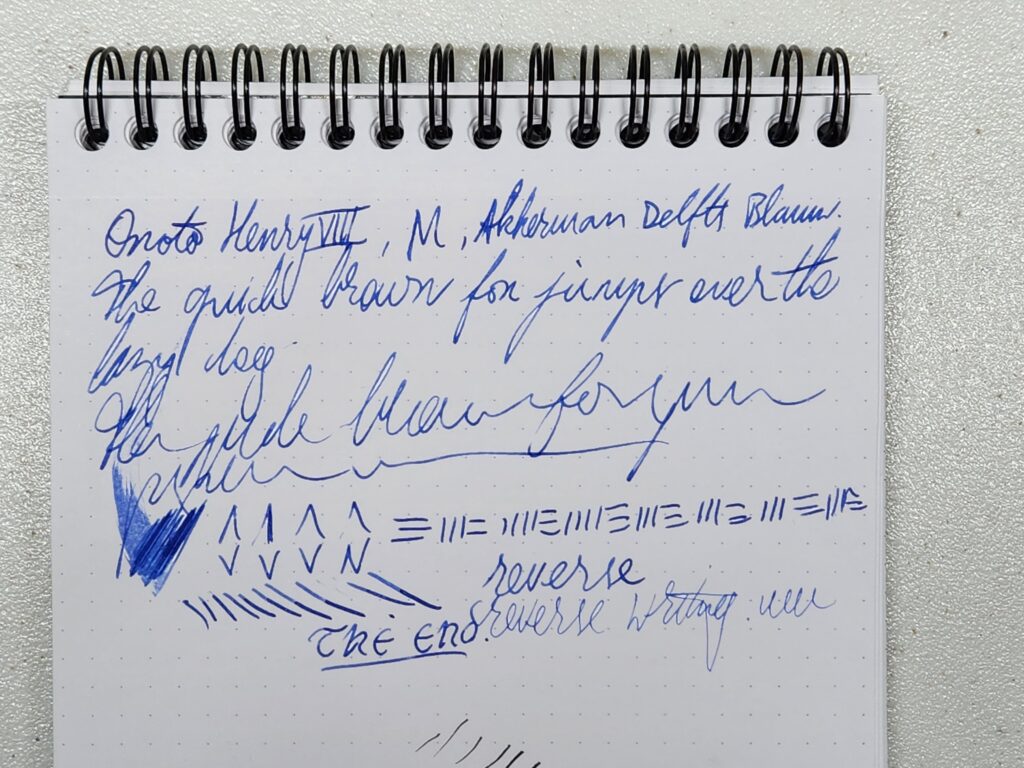 Onoto Henry VIII, M, Akkerman Delfts Blauw.
the quick brown fox jumps over the
lazy dog
the quick brown fox jum
reverse
reverse writing.
THE END.